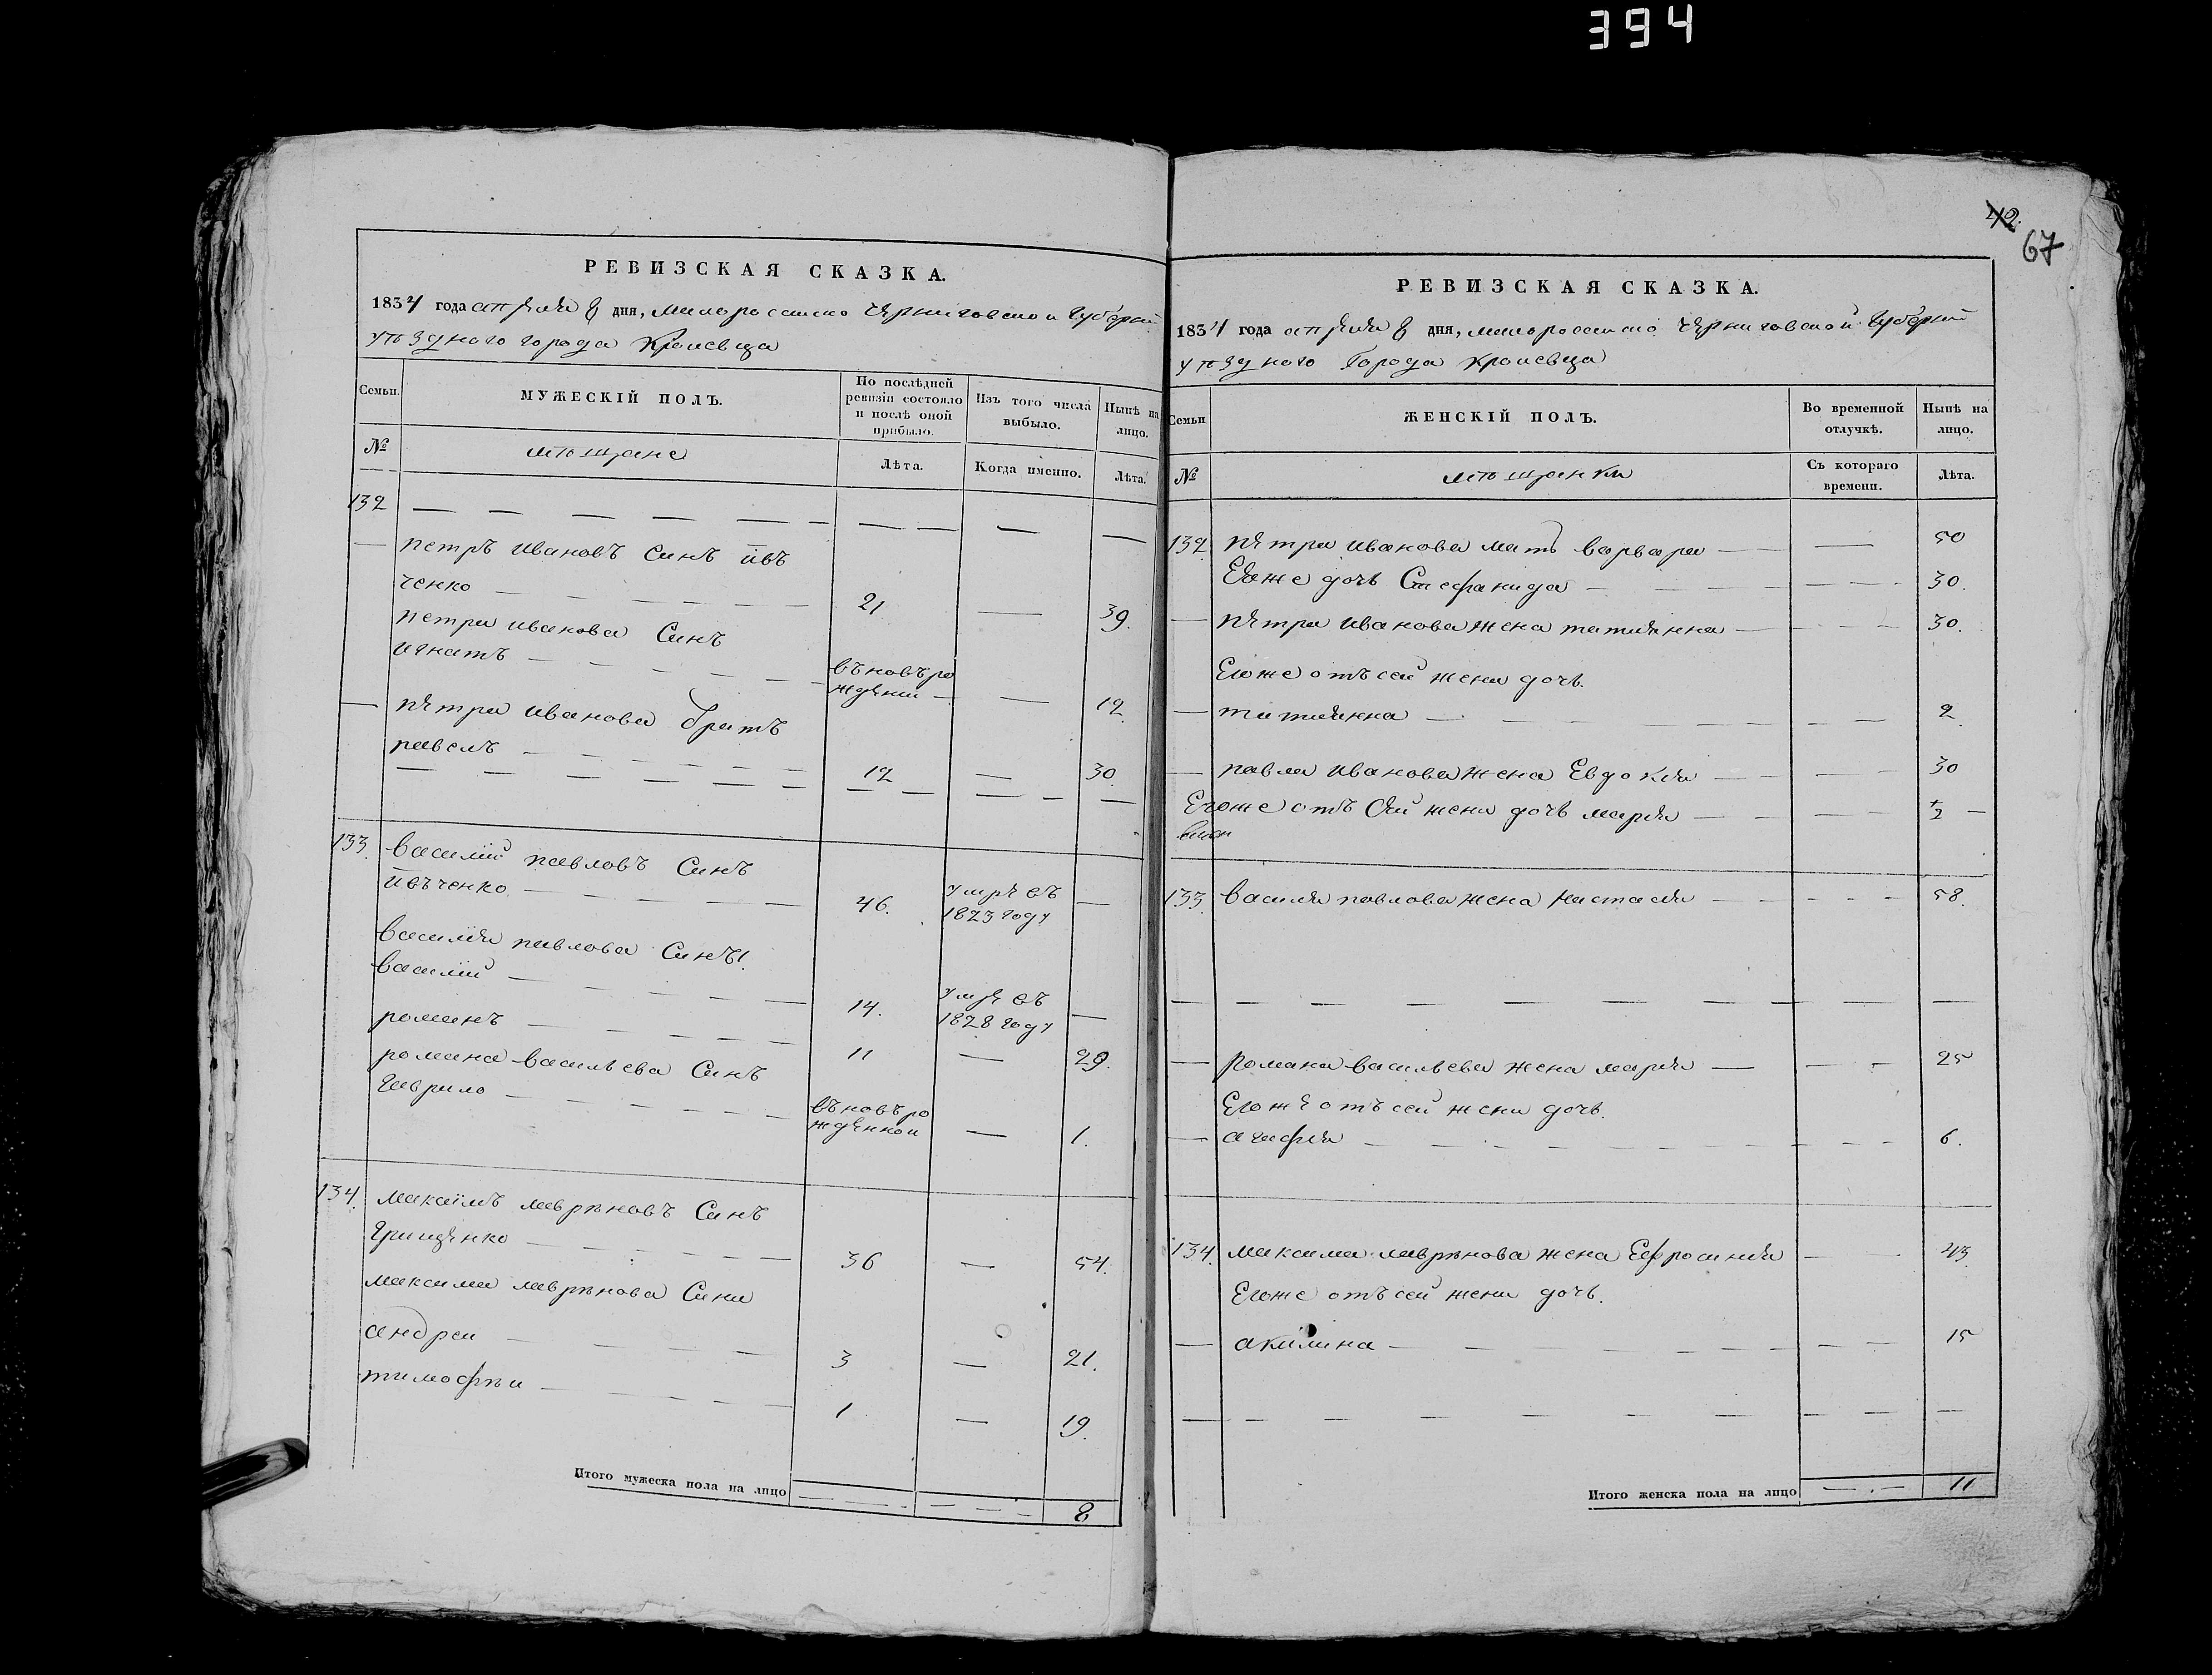 394
42.
67
РЕВИЗСКАЯ СКАЗКА.
1834 года апреля 8 дня, малоросииско Черниговскои Губернии
уѣзднаго города Кролевца
Семьи.
МУЖЕСКІЙ ПОЛЪ.
По послѣдней ревизіи состояло и послѣ оной прибыло.
Изъ того числа выбыло.
Нынѣ на лицо.
№
мѣщане
Лѣта.
Когда именно.
Лѣта.
132
петръ ивановъ синъ ивъ
ченко 21 39.
петра иванова Синъ
игнатъ въновъро
ждении 12.
петра иванова братъ
павелъ 12 30
133. василій павловъ Синъ
ивъченко 46. умре въ
1823 году
василия павлова Синъ 1.
василій 14. умре въ
1828 году
романъ 11 29.
романа васильева Синъ
гаврило въновъро
жденнои 1.
134. максимъ лавриновъ Синъ
Грищенко 36 54.
максима лавринова Сини
андреи 3 21.
тимофѣи 1 19.
Итого мужеска пола на лицо 8
РЕВИЗСКАЯ СКАЗКА.
1834 года апреля 8 дня, малоросииско Черниговской Губернии
уѣздного Города Кролевца
Семьи
ЖЕНСКІЙ ПОЛЪ.
Во временной отлучкѣ.
Нынѣ на лицо.
№
мѣщанки
Съ котораго времени.
Лѣта.
132 петра иванова мать варвара 50
Еяже дочь Стефанида 30.
петра иванова жена татиянна 30.
Егоже отъ сеи жени дочь.
татиянна 2.
павла иванова жена Евдокия 30
Егоже отъ сеи жени дочь мария 1/2
133. василия павлова жена настасия 58.
Романа васильева жена мария 25
Егоже отъ сеи жени дочь.
агафия 6.
134. максима лавринова жена Ефросиния 43.
Егоже отъ сеи жени дочь.
акилина 15
Итого женска пола на лицо 11